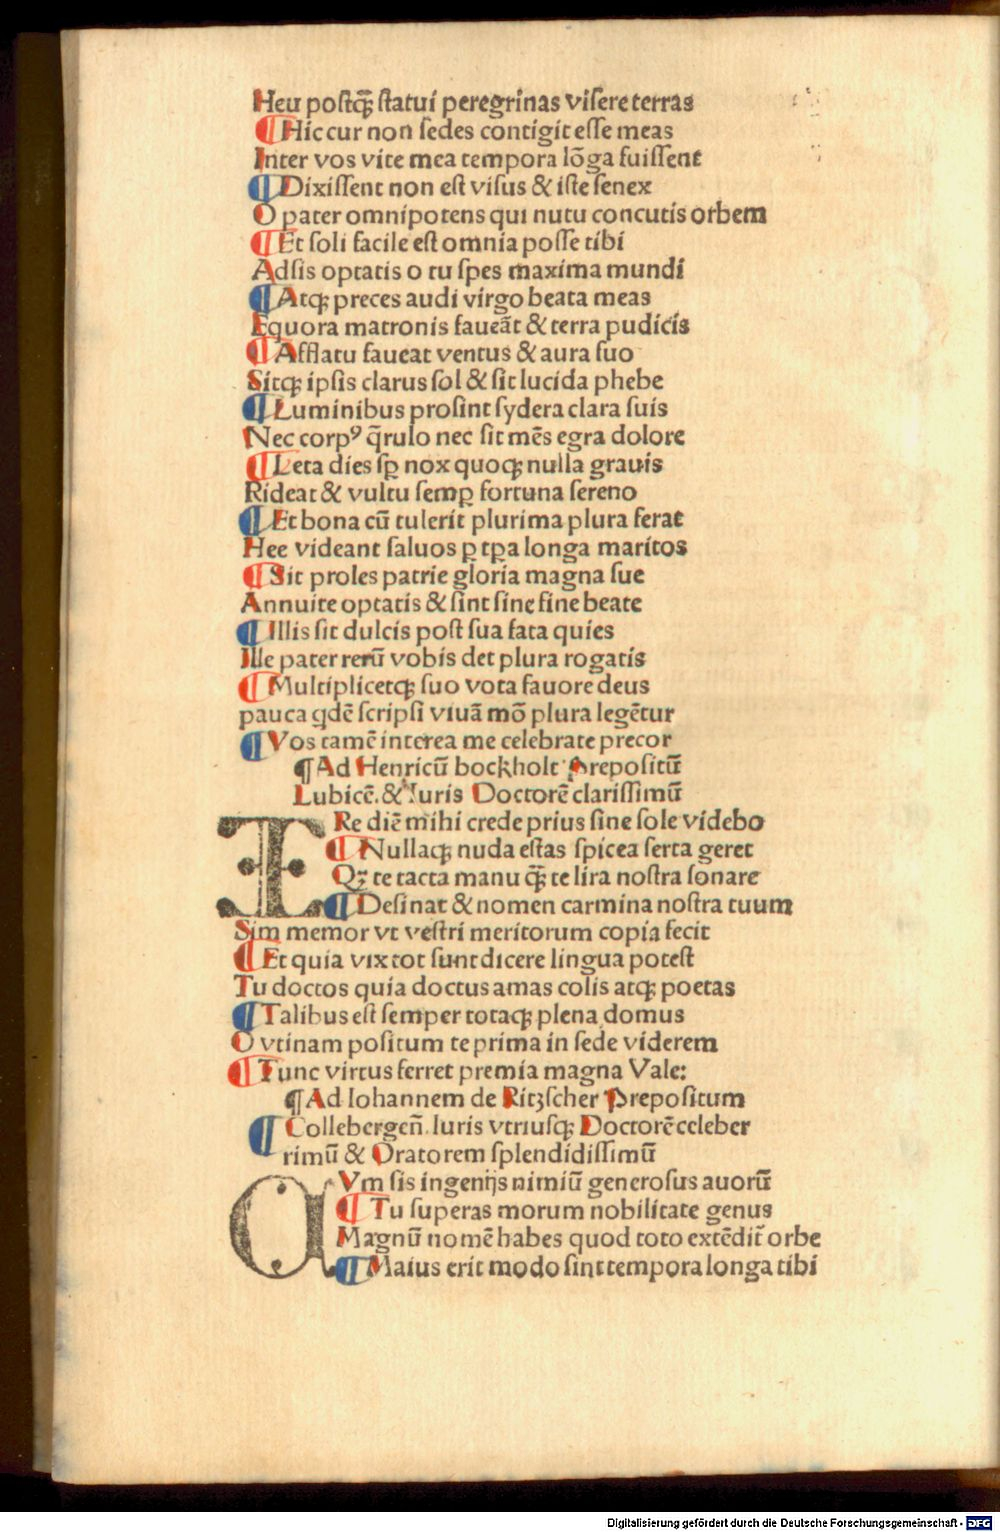 Heu postq̃ statui peregrinas visere terras
¶ Hic cur non sedes contigit esse meas
Inter vos vite mea tempora lõga fuissent
¶ Dixissent non est visus & iste senex
O pater omnipotens qui nutu concutis orbem
¶ Et soli facile est omnia posse tibi
Adsis optatis o tu spes maxima mundi
¶ Atq; preces audi virgo beata meas
Equora matronis faueãt & terra pudicis
¶ Afflatu faueat ventus & aura suo
Sitq; ipsis clarus sol & sit lucida phebe
¶ Luminibus prosint sydera clara suis
Nec corpꝰ q̃rulo nec sit mẽs egra dolore
¶ Leta dies sꝑ nox quoq; nulla grauis
Rideat & vultu semꝑ fortuna sereno
¶ Et bona cũ tulerit plurima plura ferat
Hee videant saluos ꝑ tꝑa longa maritos
¶ Sit proles patrie gloria magna sue
Annuite optatis & sint sine fine beate
¶ Illis sit dulcis post sua fata quies
Ille pater rerũ vobis det plura rogatis
¶ Multiplicetq; suo vota fauore deus
pauca qdẽ scripsi viuã mõ plura legẽtur
¶ Vos tamẽ interea me celebrate precor
¶ Ad Henricũ bockholt Prepositũ
Lubicẽ. & Iuris Doctorẽ clarissimũ
ERe diẽ mihi crede prius sine sole videbo
¶ Nullaq; nuda estas spicea serta geret
Qꝫ te tacta manu q̃ te lira nostra sonare
¶ Desinat & nomen carmina nostra tuum
Sim memor vt vestri meritorum copia fecit
¶ Et quia vix tot sunt dicere lingua potest
Tu doctos quia doctus amas colis atq; poetas
¶ Talibus est semper totaq; plena domus
O vtinam positum te prima in sede viderem
¶ Tunc virtus ferret premia magna Vale:
¶ Ad Iohannem de Ritzscher Prepositum
¶ Collebergeñ. Iuris vtriusq; Doctorẽ celeber
rimũ & Oratorem splendidissimũ
QVm sis ingenijs nimiũ generosus auorũ
¶ Tu superas morum nobilitate genus
Magnũ nomẽ habes quod toto extẽdit̃ orbe
¶ Maius erit modo sint tempora longa tibi
Digitalisierung gefördert durch die Deutsche Forschungsgemeinschaft - DFG